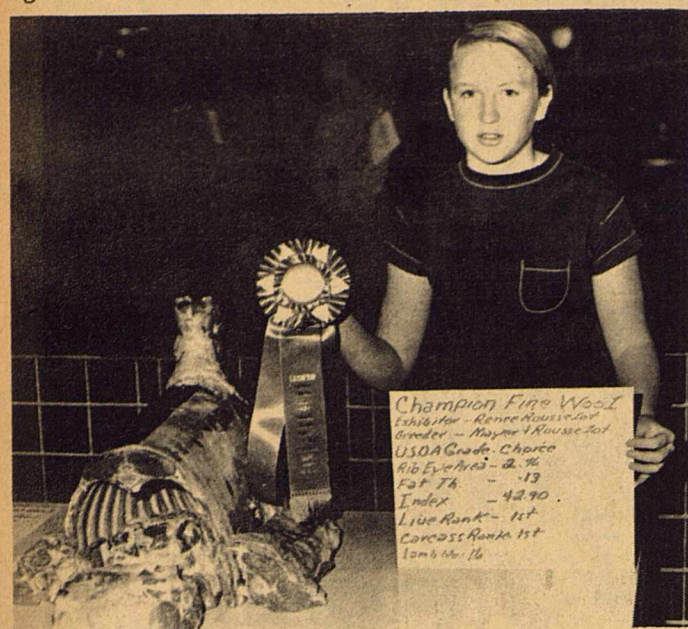 Champion Fine Wool
Exhibitor - Renee Rousselot
Breeder - Mayer & Rousselot
USDA Grade - Choice
Rib Eye Area - 2.96
Fat Th. - .13
Index - 42.90
Live Rank - 1st
Carcass Rank - 1st
Lamb No. 16